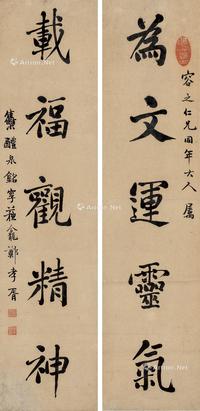 為文運靈氣
容之仁兄同年大人屬
載福觀精神
集醴泉銘字 鄭孝胥